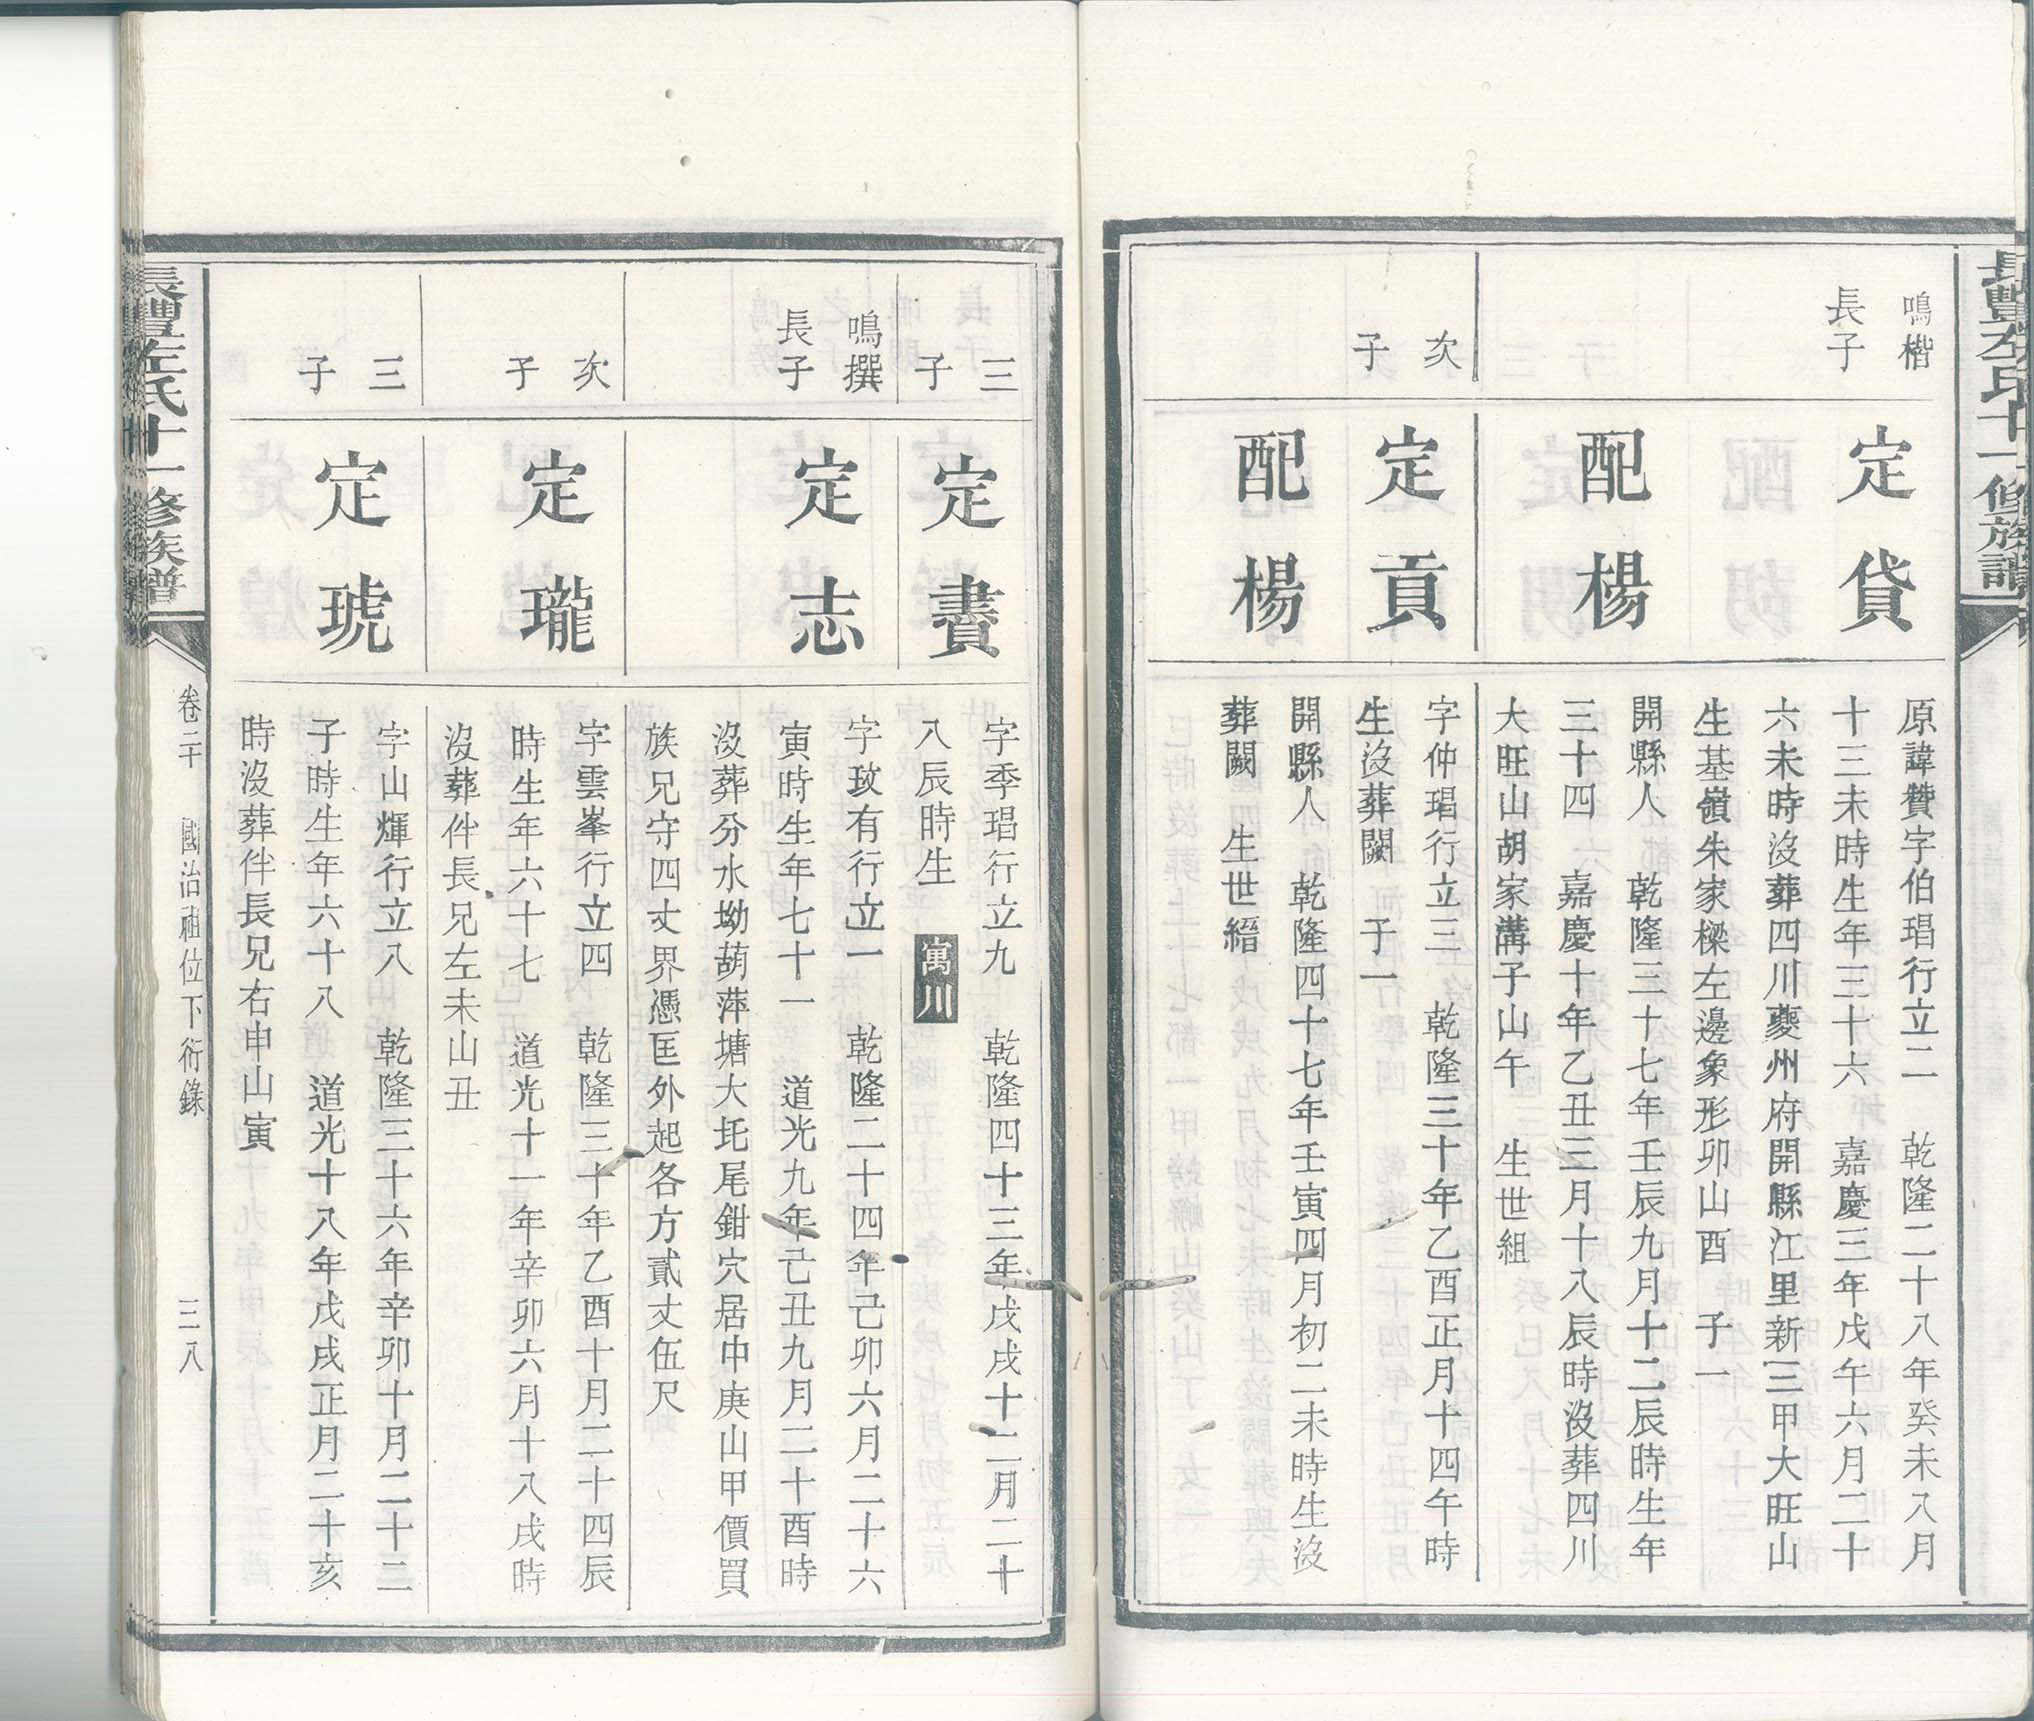 長豐左氏十一修族譜
鳴楷
長子
定貸
原諱贊字伯琩行立二　乾隆二十八年癸未八月
十三未時生年三十六　嘉慶三年戊午六月二十
六未時沒葬四川夔州府開縣江里新三甲大旺山
生基嶺朱家樑左邊象形卯山酉　子一
配楊
開縣人　乾隆三十七年壬辰九月十二辰時生年
三十四　嘉慶十年乙丑三月十八辰時沒葬四川
大旺山胡家溝子山午　生世組
次
子
定貢
字仲琩行立三　乾隆三十年乙酉正月十四午時
生沒葬闕　子一
配楊
開縣人　乾隆四十七年壬寅四月初二未時生沒
葬闕　生世縉
三
子
定賮
字季琩行立九　乾隆四十三年戊戌十二月二十
八辰時生　寓川
鳴撰
長子
定志
字玫有行立一　乾隆二十四年己卯六月二十六
寅時生年七十一　道光九年己丑九月二十酉時
沒葬分水坳葫萍塘大坵尾鉗穴居中庚山甲價買
族兄守四丈界憑匡外起各方貳丈伍尺
次
子
定瓏
字雲峯行立四　乾隆三十年乙酉十月二十四辰
時生年六十七　道光十一年辛卯六月十八戌時
沒葬伴長兄左未山丑
三
子
定琥
字山輝行立八　乾隆三十六年辛卯十月二十三
子時生年六十八　道光十八年戊戌正月二十亥
時沒葬伴長兄右申山寅
長豐左氏十一修族譜
卷二十　國治祖位下衍錄　三八